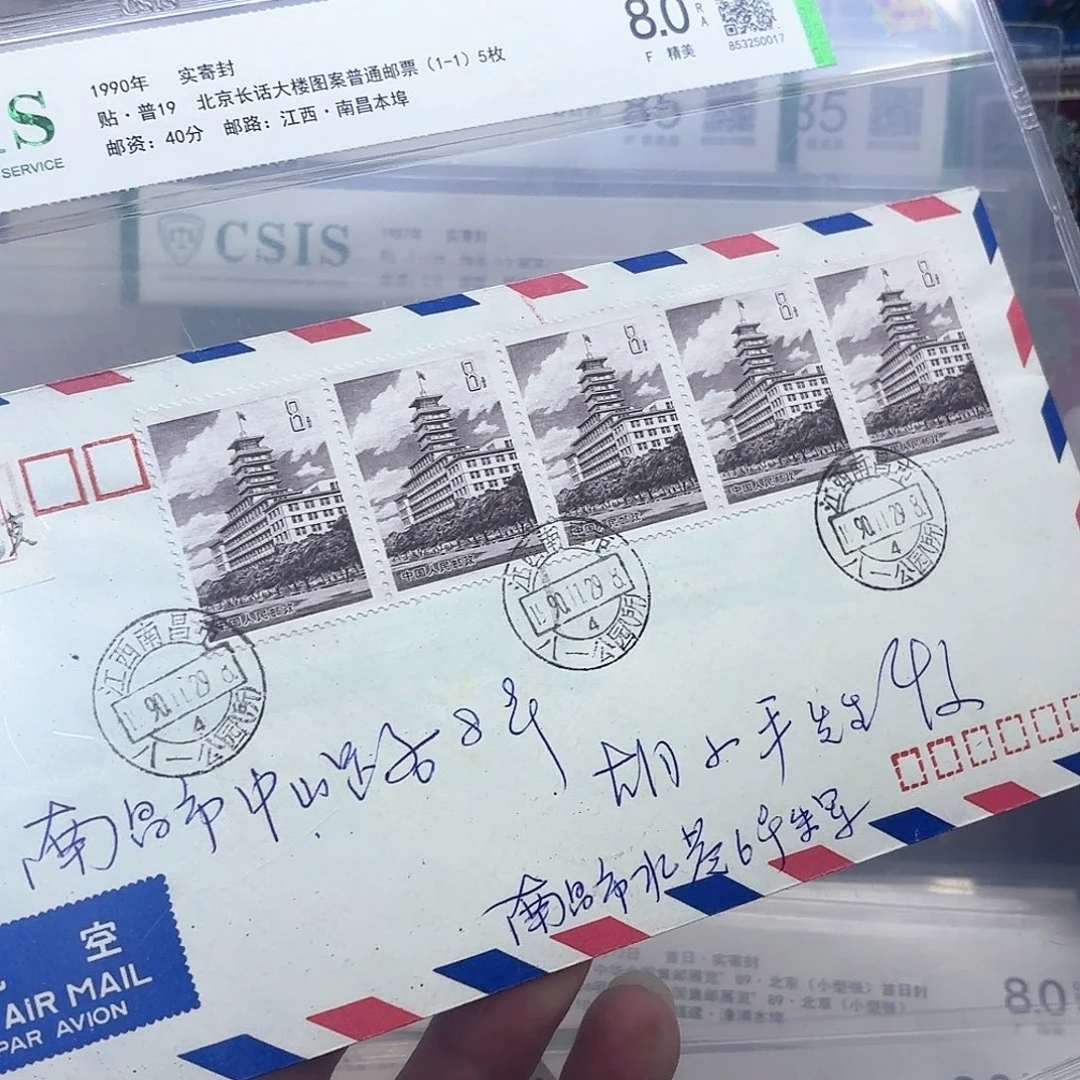 8.0
RA
F 精美
853250017
1990年 实寄封
贴·普19 北京长话大楼图案普通邮票（1-1）5枚
邮资：40分 邮路：江西·南昌本埠
S
SERVICE
85
85
CSIS
实寄封
8分
8分
8分
8分
8分
中国人民邮政
中国人民邮政
中国人民邮政
中国人民邮政
中国人民邮政
江西南昌
90.11.29
4
八一公园(所)
江西南
90.11.29
4
八一公园(所)
江西南昌
90.11.29
4
八一公园(所)
南昌市中山路8号
胡小平先生收
南昌市水巷6号朱军
空
AIR MAIL
PAR AVION
首日·实寄封
集邮展览"89·北京（小型张）首日封
"89·北京（小型张）
8.0